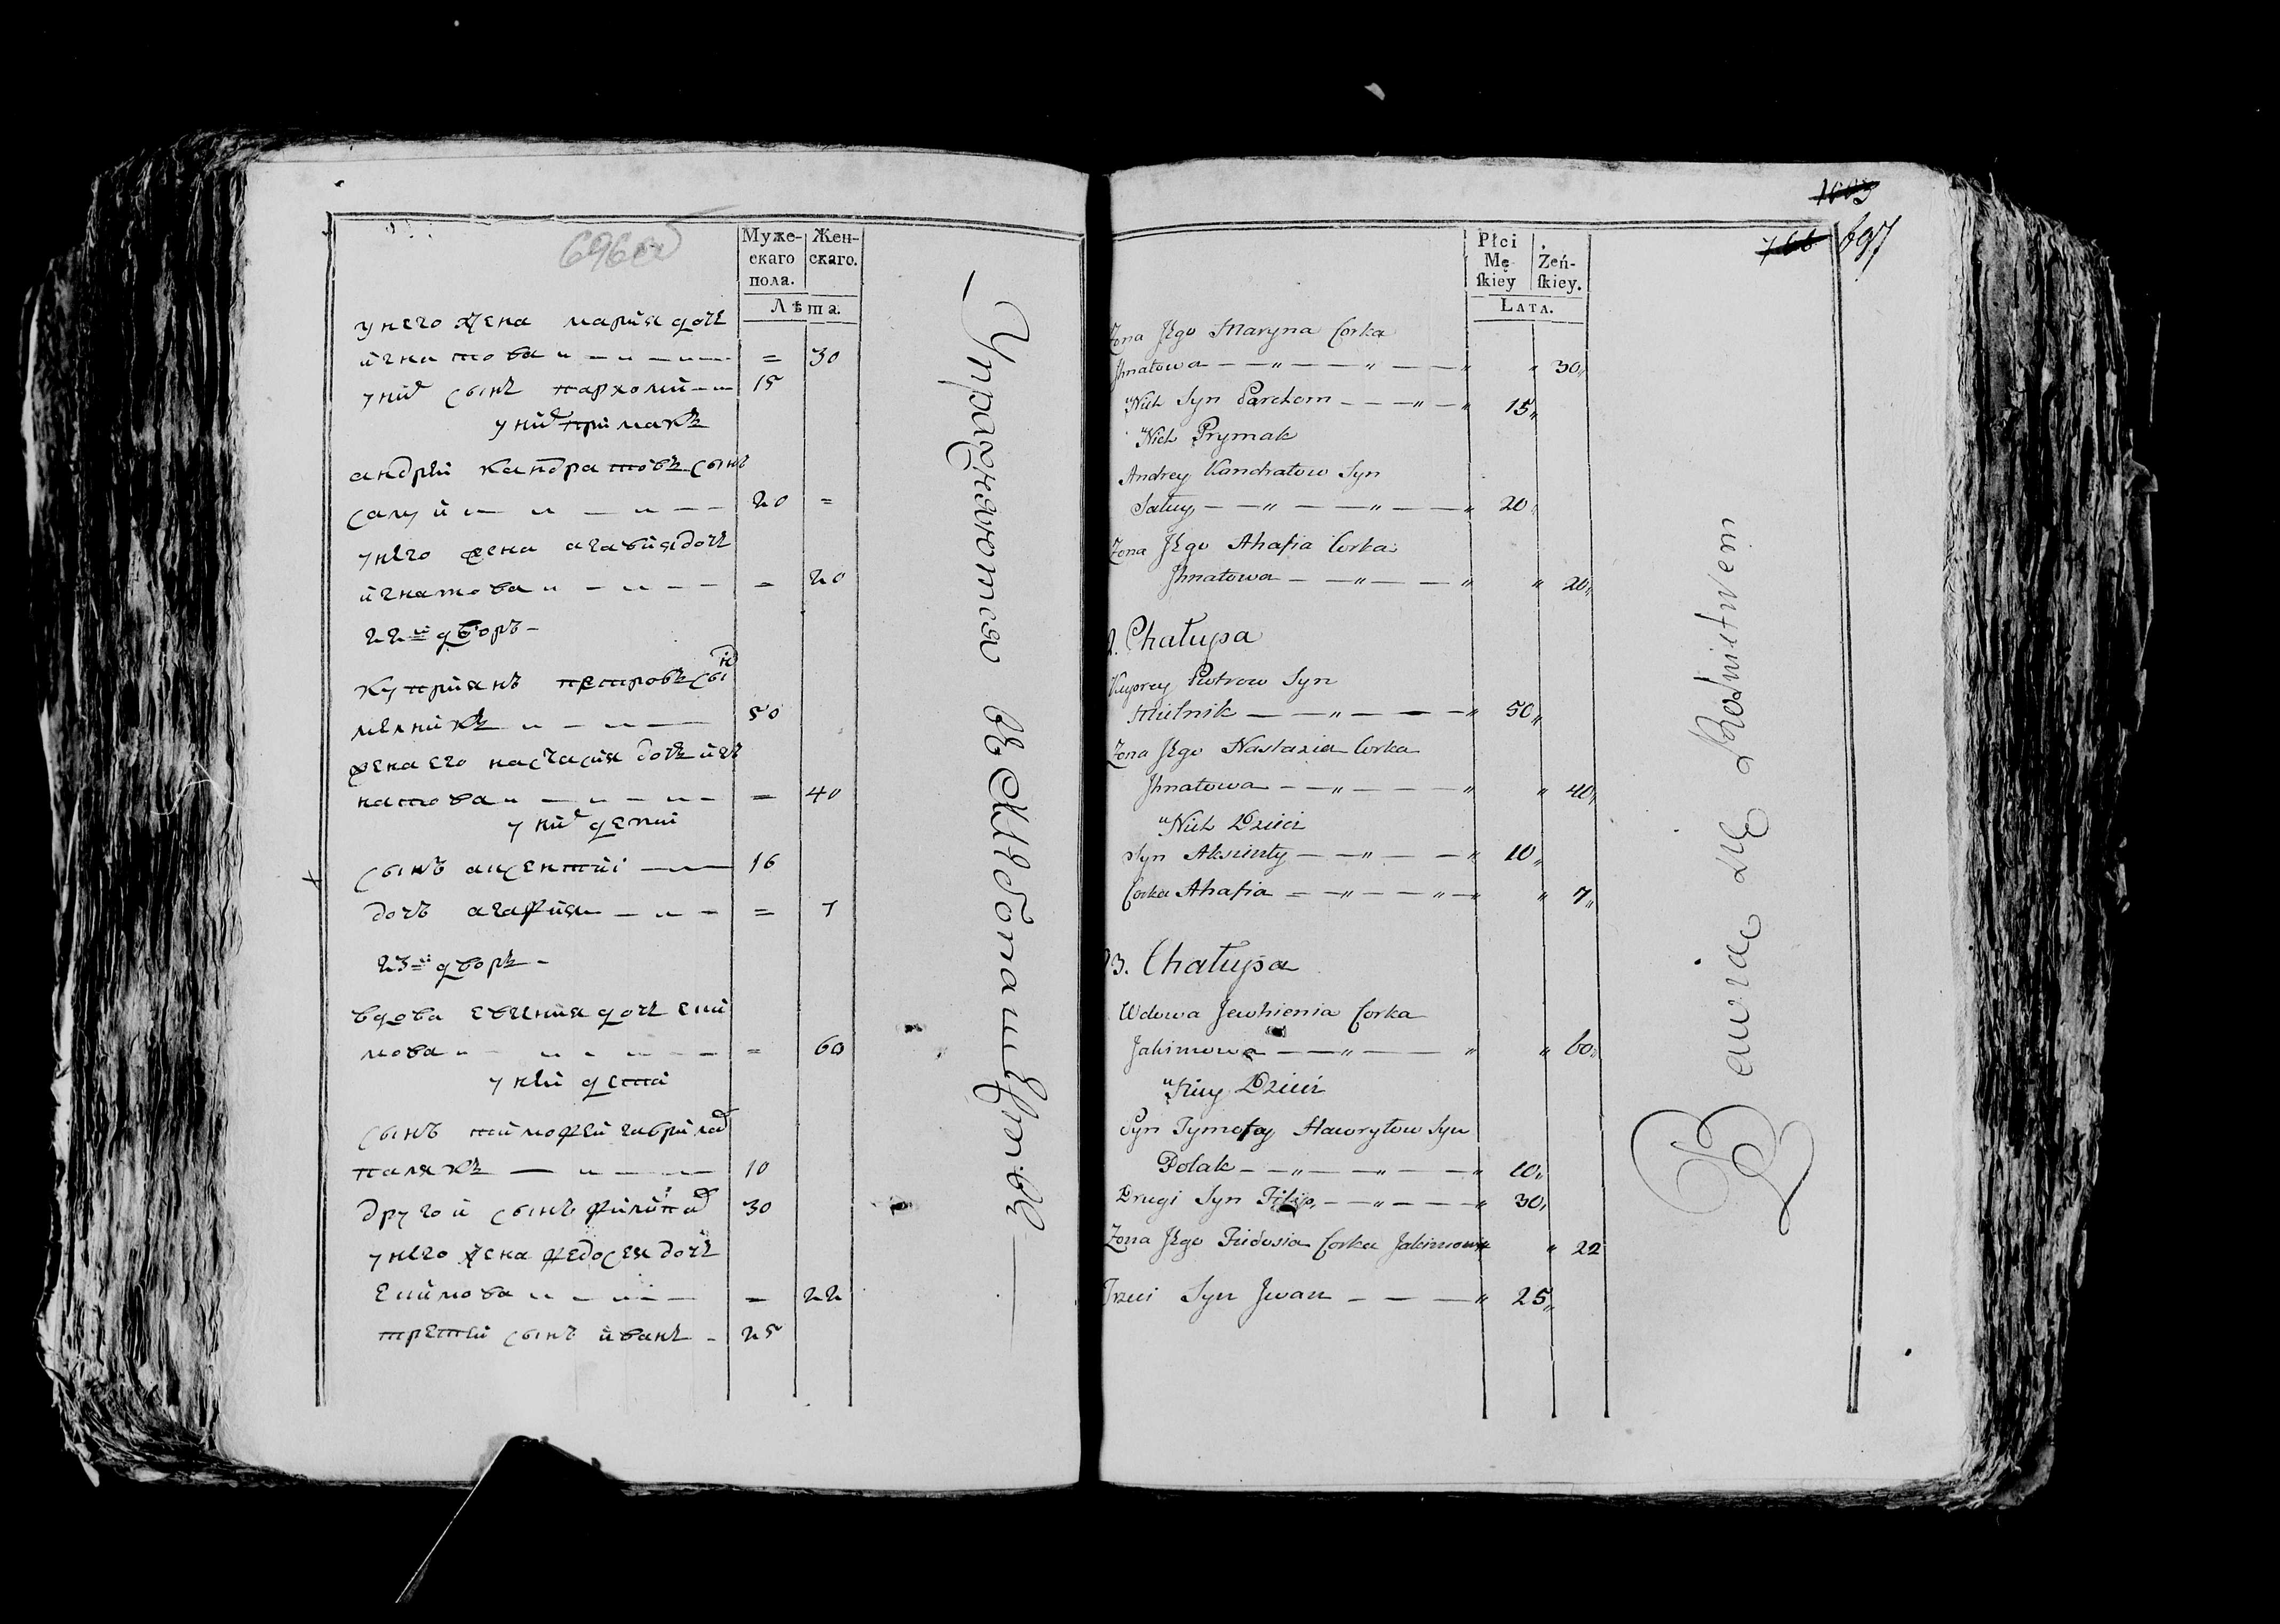 696об
Муже-
скаго
пола.
Жен-
скаго.
Лѣта.
у него жена мария дочь
игнатова 30
у них сынъ пархомий 15
у них примакъ
андрѣй кандратовъ сынъ
салуй 20
у нѣго жена агафия дочь
игнатова 20
22й дворъ
куприянъ петровъ сын
мѣлникъ 50
жена его настасия дочъ иг
натова 40
у них дети
сынъ аксентий 16
дочъ агафия 7
23й дворъ
вдова евгения дочь еки
мова 60
у нѣй дети
сынъ тимофей гаврилов
палякъ 10
другой сынъ филип 30
у нѣго жена федосея дочь
екимова 22
третий сынъ иванъ 25
Упражняются въ хлѣбопашествѣ
1603
766 697
Płci
Mę
skiey
Zeń-
skiey.
LATA.
Zona Jego Maryna Corka
Jhnatowa 30
u Nich Syn Parchom 15
u Nich Prymak
Andrey Kandratow Syn
Sałuy 20
Zona Jego Ahafia Corka
Jhnatowa 20
2. Chałupa
Kuprey Piotrow Syn
Mielnik 50
Zona Jego Nastazia Corka
Jhnatowa 40
u Nich Dzieci
Syn Aksienty 10
Corka Ahafia 7
23. Chałupa
Wdowa Jewhienia Corka
Jakimowa 60
u Niey Dzieci
Syn Tymofey Hawryłow Syn
Polak 10
Drugi Syn Filip 30
Zona Jego Fiedosia Corka Jakimowa 22
Trzeci Syn Jwan 25
Bawią się Rolnictwem